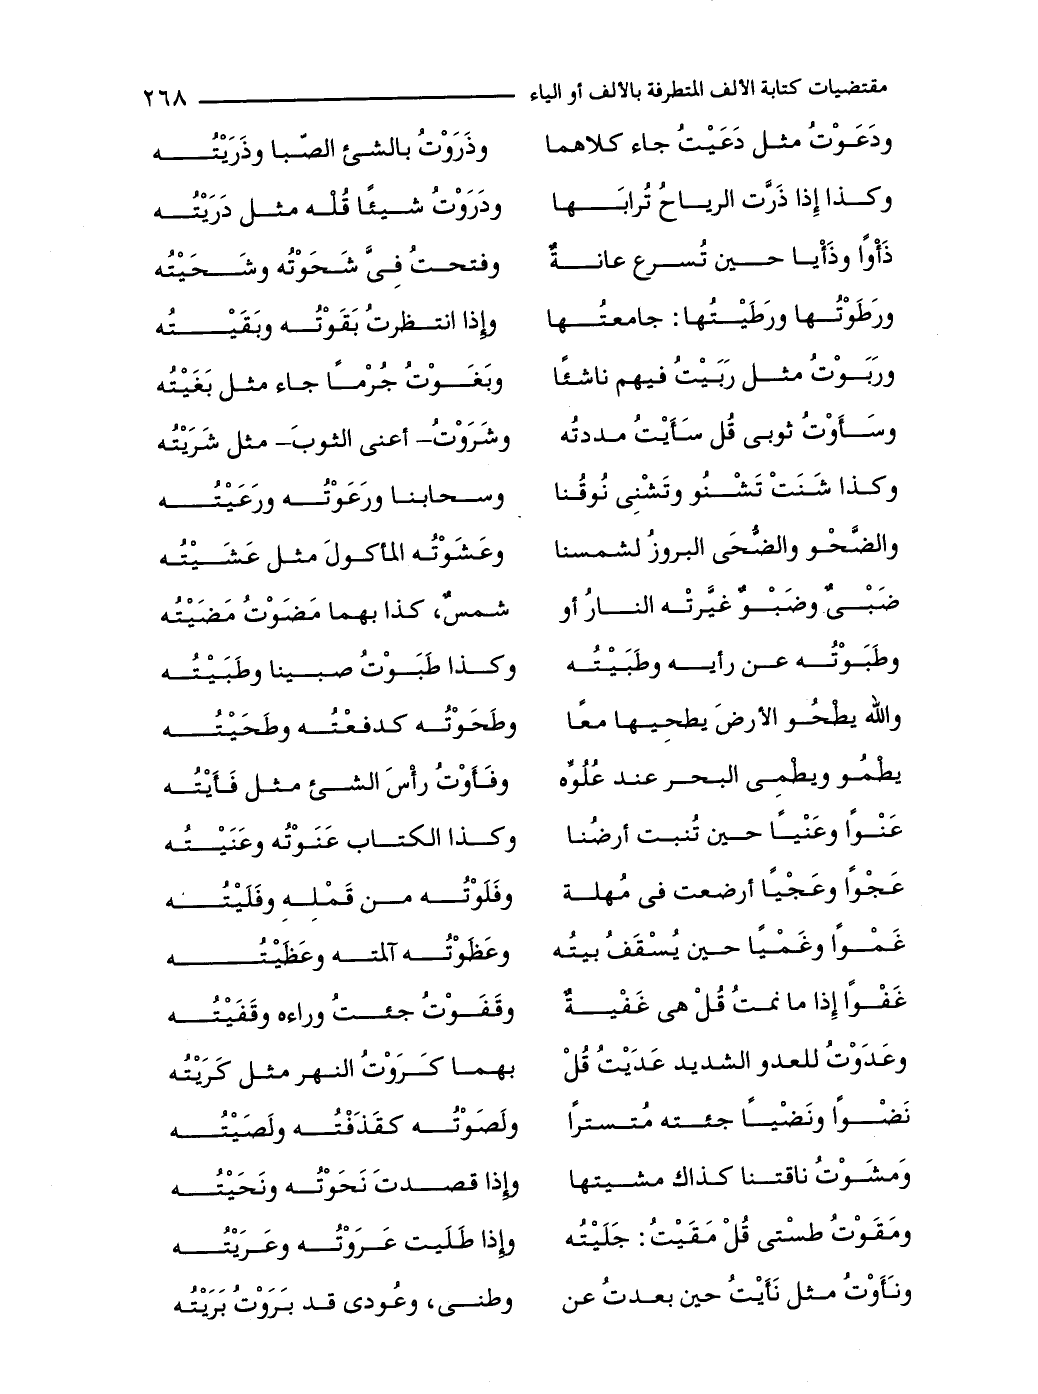 مقتضيات كتابة الألف المتطرفة بالألف أو الياء ٢٦٨
ودَعَوْتُ مثل دَعَيْتُ جاء كلاهما وذَرَوْتُ بالشئ الصّبا وذَرَيْتُه
وكذا إذا ذَرَّت الرياحُ تُرابَها ودَرَوْتُ شيئًا قُلْه مثل دَرَيْتُه
ذَأْوًا وذَأْيا حين تُسرع عانةٌ وفتحتُ فىَّ شَحَوْتُه وشَحَيْتُه
ورَطَوْتُها ورَطَيْتُها: جامعتُها وإذا انتظرتُ بَقَوْتُه وبَقَيْتُه
ورَبَوْتُ مثل رَبَيْتُ فيهم ناشئًا وبَغَوْتُ جُرْمًا جاء مثل بَغَيْتُه
وسَأَوْتُ ثوبى قُل سَأَيْتُ مددتُه وشَرَوْتُ- أعنى الثوبَ- مثل شَرَيْتُه
وكذا شَنَتْ تَشْنُو وتَشْنى نُوقُنا وسحابنا ورَعَوْتُه ورَعَيْتُه
والضَّحْو والضُّحَى البروزُ لشمسنا وعَشَوْتُه المأكولَ مثل عَشَيْتُه
ضَبْىٌ وضَبْوٌ غيَّرتْه النارُ أو شمسٌ، كذا بهما مَضَوْتُ مَضَيْتُه
وطَبَوْتُه عن رأيه وطَبَيْتُه وكذا طَبَوْتُ صبينا وطَبَيْتُه
والله يطْحُو الأرضَ يطحيها معًا وطَحَوْتُه كدفعْتُه وطَحَيْتُه
يطْمُو ويطْمى البحر عند عُلُوِّه وفَأَوْتُ رأْسَ الشئ مثل فَأَيْتُه
عَنْوًا وعَنْيًا حين تُنبت أرضُنا وكذا الكتاب عَنَوْتُه وعَنَيْتُه
عَجْوًا وعَجْيًا أرضعت فى مُهلة وفَلَوْتُه من قَمْله وفَلَيْتُه
غَمْوًا وغَمْيًا حين يُسْقَفُ بيتُه وعَظَوْتُه آلمته وعَظَيْتُه
غَفْوًا إذا ما نمتُ قُلْ هى غَفْيةٌ وقَفَوْتُ جئتُ وراءه وقَفَيْتُه
وعَدَوْتُ للعدو الشديد عَدَيْتُ قُلْ بهما كَرَوْتُ النهر مثل كَرَيْتُه
نَضْوًا ونَضْيًا جئته مُتسترًا ولَصَوْتُه كقَذَفْتُه ولَصَيْتُه
وَمشَوْتُ ناقتنا كذاك مشيتها وإذا قصدتَ نَحَوْتُه ونَحَيْتُه
ومَقَوْتُ طستى قُلْ مَقَيْتُ: جَلَيْتُه وإذا طَلَيت عَرَوْتُه وعَرَيْتُه
ونَأَوْتُ مثل نَأَيْتُ حين بعدتُ عن وطنى، وعُودى قد بَرَوْتُ بَرَيْتُه